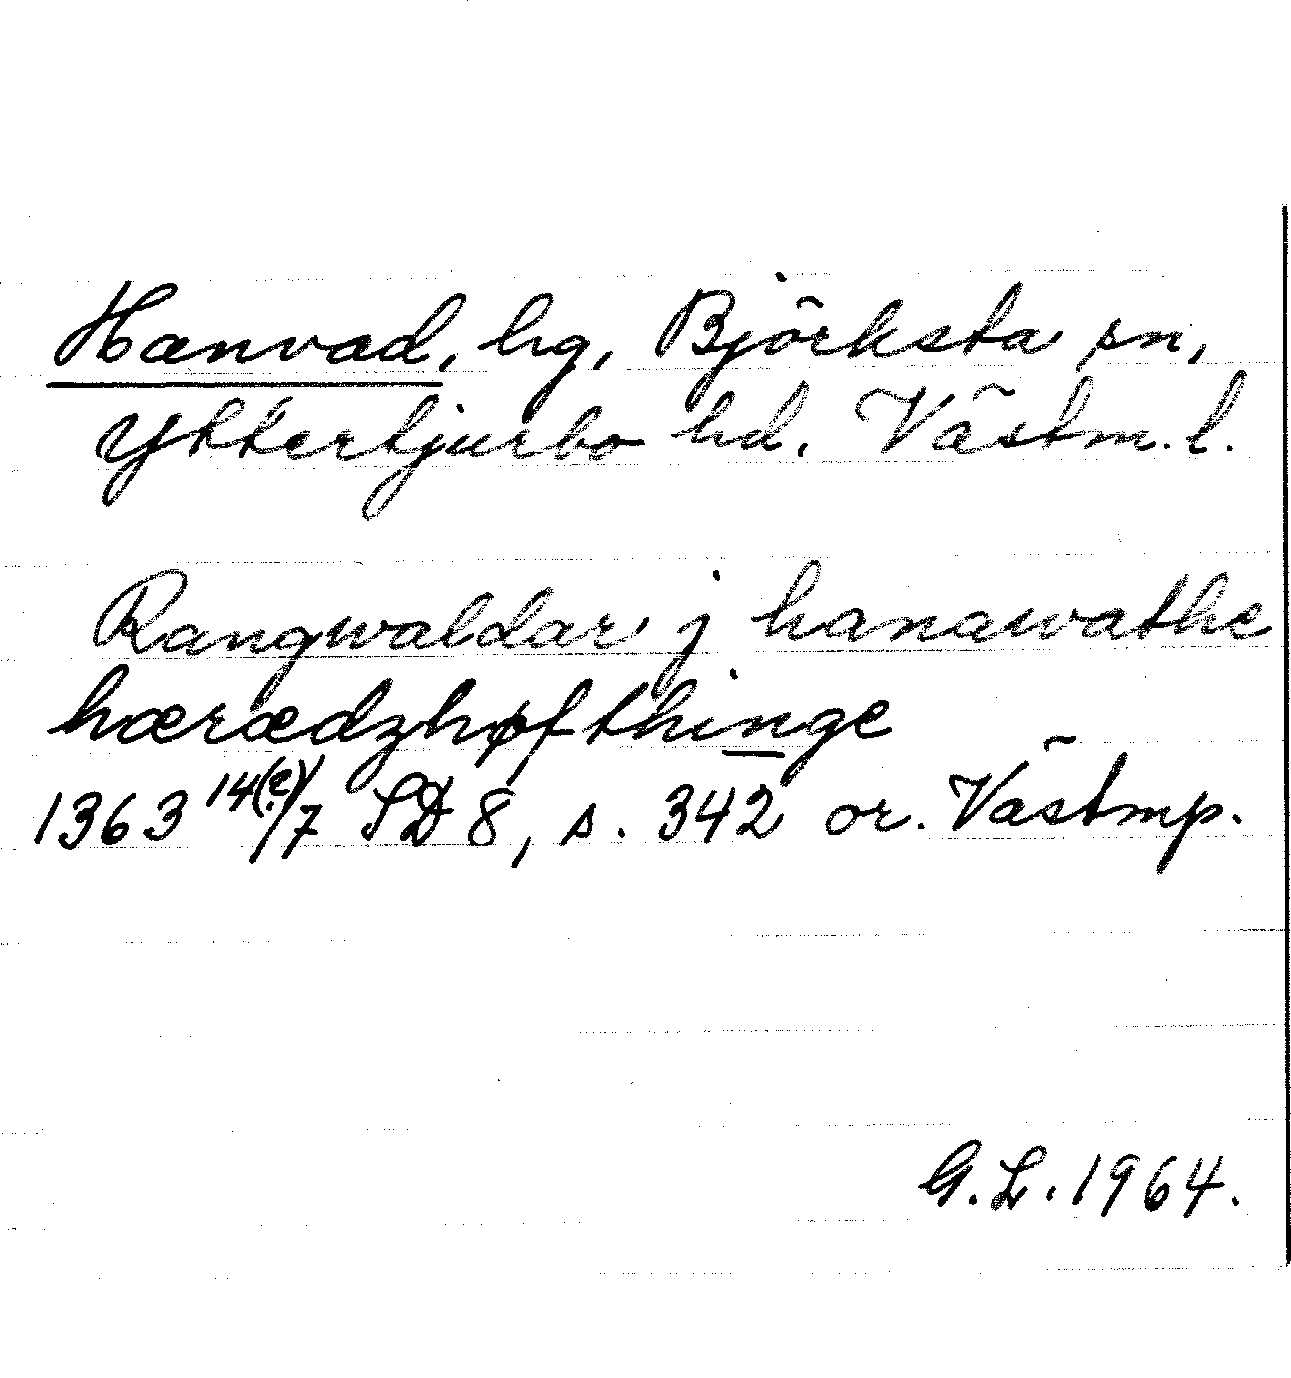 Hanvad, hg, Björksta sn,
Yttertjurbo hd. Västm. l.
Rangwaldar j hanawathe
hærædzhøfthinge
1363 14(e)/7 SD 8, s. 342 or. Västmp.
G.L. 1964.